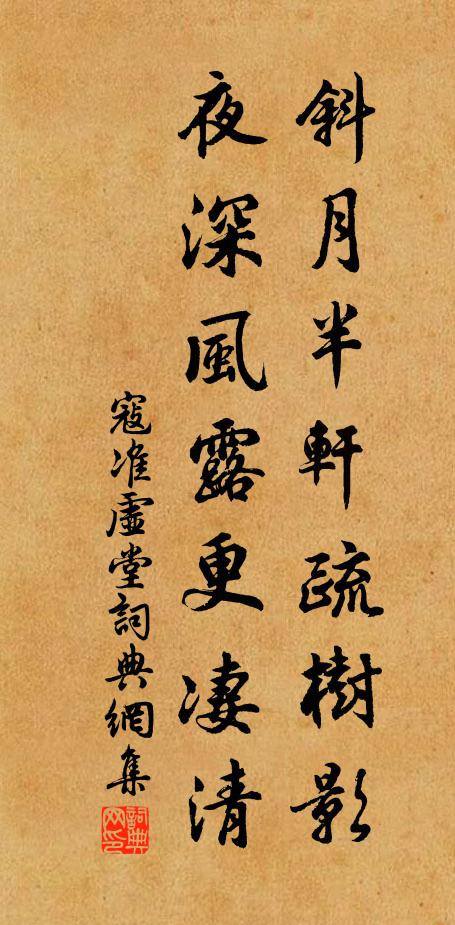 斜月半軒疏樹影
夜深風露更凄清
寇准虛堂詞典網集
詞典网印